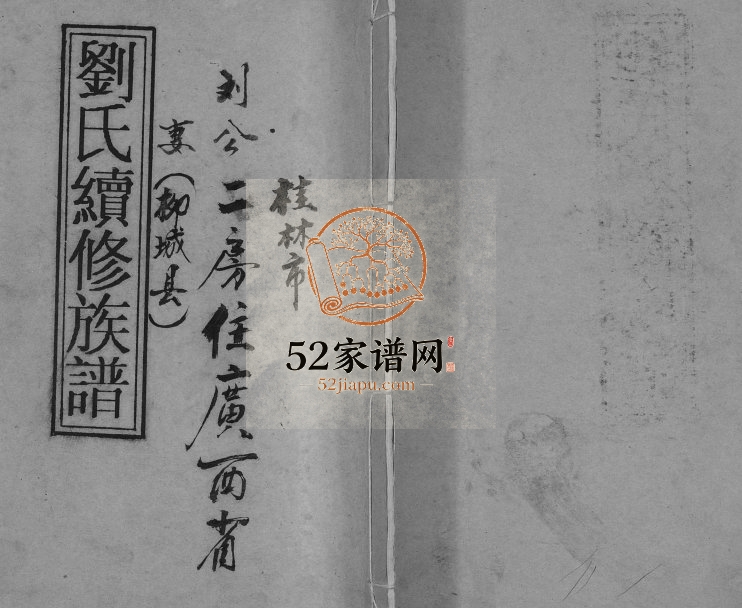 桂林市
刘公二房住廣西省
妻(柳城县)
劉氏續修族譜
52家谱网
52jiapu.com